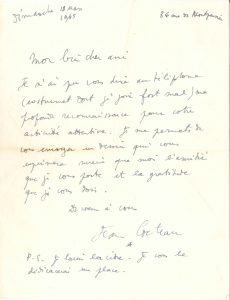 Dimanche 18 mars 1945
36 rue de Montpensier
Mon bien cher ami
Je n'ai pas vous dire au téléphone
(instrument dont je joue fort mal) ma
profonde reconnaissance pour votre
activité attentive. Je me permets de
vous envoyer un dessin qui vous
exprimera mieux que moi l'amitié
que je vous porte et la gratitude
que je vous dois.
De cœur à vous
Jean Cocteau
*
P-S. Je
Je vous le
dédicacerai sur place.